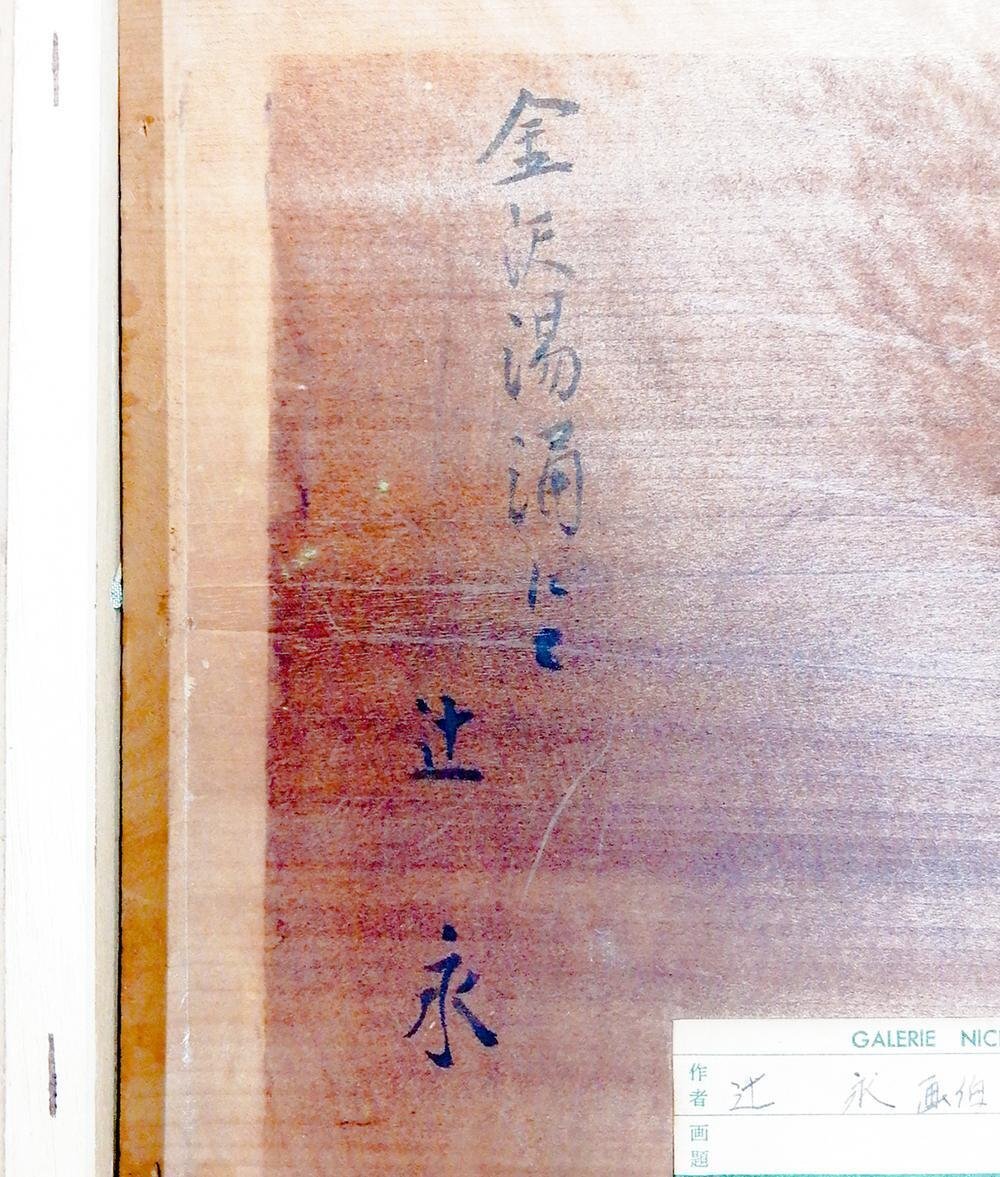 金沢湯涌にて
辻 永
GALERIE NIC
作者 辻 永 画伯
画題